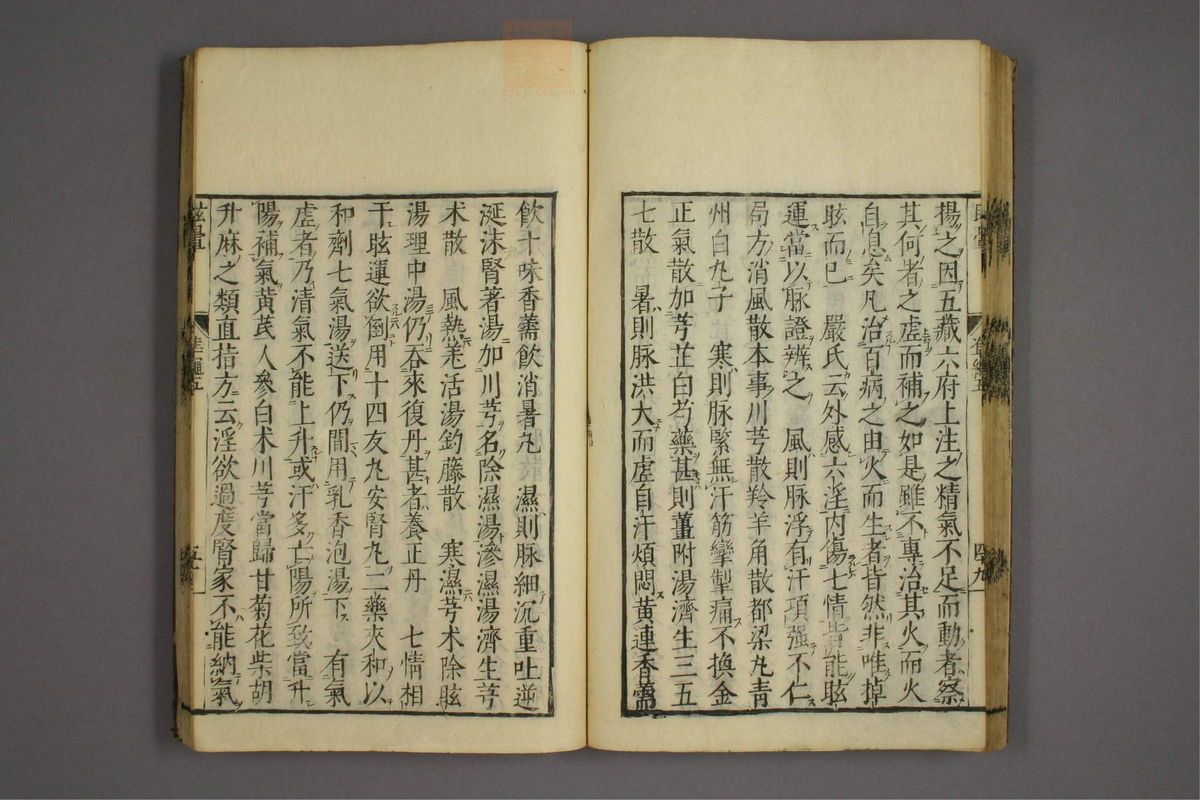 揚之因五藏六府上注之精氣不足而動者察
其何者之虛而補之如是雖不專治其火而火
自息矣凡治百病之由火而生者皆然非唯掉
眩而已　嚴氏云外感六淫內傷七情皆能眩
運當以脉證辨之　風則脉浮有汗項强不仁
局方消風散本事川芎散羚羊角散都梁丸青
州白丸子　寒則脉緊無汗筋攣掣痛不換金
正氣散加芎芷白芍藥甚則薑附湯濟生三五
七散　暑則脉洪大而虛自汗煩悶黃連香薷
飲十味香薷飲消暑丸　濕則脉細沉重吐逆
涎沫腎著湯加川芎名除濕湯滲濕湯濟生芎
术散　風熱羌活湯鈎藤散　寒濕芎术除眩
湯理中湯仍吞來復丹甚者養正丹　七情相
干眩運欲倒用十四友丸安腎丸二藥夾和以
和劑七氣湯送下仍間用乳香泡湯下　有氣
虛者乃清氣不能上升或汗多亡陽所致當升
陽補氣黃芪人參白术川芎當歸甘菊花柴胡
升麻之類直指方云淫欲過度腎家不能納氣
眩暈